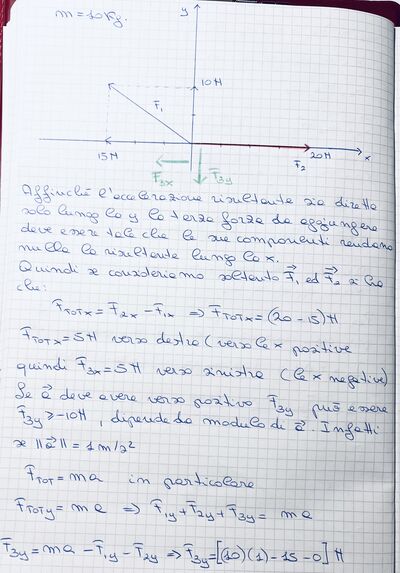 m = 10 Kg.
y
10 N
F₁
15 N
F₃ₓ
F₃y
F₂
20 N
x
Affinché l'accelerazione risultante sia diretta
solo lungo la y la terza forza da aggiungere
deve essere tale che le sue componenti rendano
nulla la risultante lungo la x.
Quindi se consideriamo soltanto F⃗₁ ed F⃗₂ si ha
che:
F̄TOTx = F̄₂ₓ - F̄₁ₓ ⇒ F̄TOTx = (20 - 15) N
F̄TOTx = 5N verso destra (verso le x positive
quindi F̄₃ₓ = 5N verso sinistra (le x negative)
Se a⃗ deve avere verso positivo F̄₃y può essere
F̄₃y > -10N, dipende da modulo di a⃗. Infatti
se ||a⃗|| = 1 m/s²
F̄TOT = ma in particolare
F̄TOTy = ma ⇒ F̄₁y + F̄₂y + F̄₃y = ma
F̄₃y = ma - F̄₁y - F̄₂y ⇒ F̄₃y = [(10)(1) - 15 - 0] N